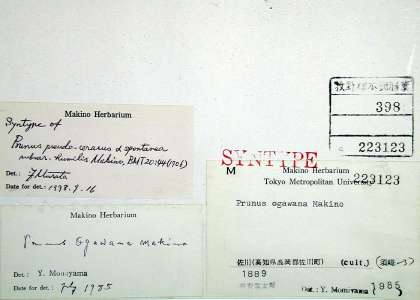 Makino Herbarium
Syntype of
Prunus pseudo-cerasus α spontanea
subvar. humilis Makino, BMT 20:44 (1906)
Det.:
Date for det.: 1998.9.16
Makino Herbarium
Prunus Ogawana Makino
Det.: Y. Momiyama
Date for det.: July 1985
398
223123
SYNTYPE
M
Makino Herbarium
Tokyo Metropolitan University
223123
Prunus ogawana Makino
佐川(高知県高岡郡佐川町) (cult.)
1889
Det.: Y. Momiyama 1985